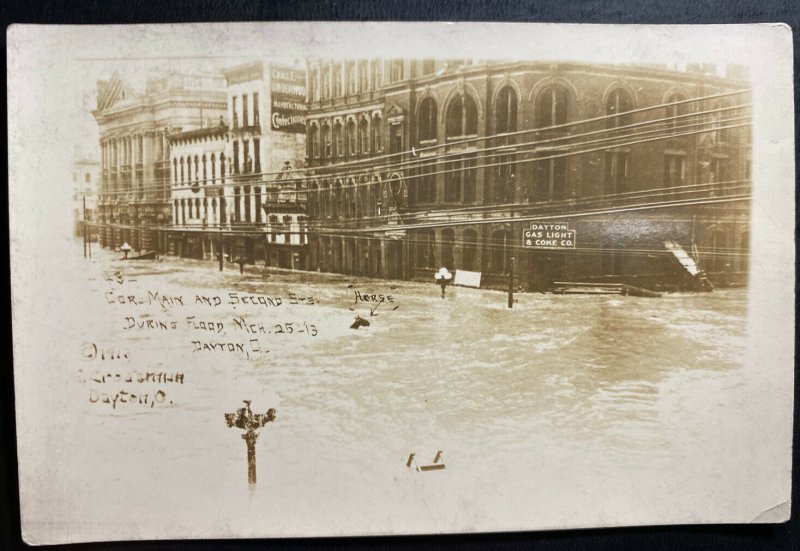 CHAS. E.
UNDERWOOD
MANUFACTURING
Confectioner
DAYTON
GAS LIGHT
& COKE CO.
43-
COR- MAIN AND SECOND STS.
HORSE
DURING FLOOD, MCH. 25-13
DAYTON, O-
Dayton, O.